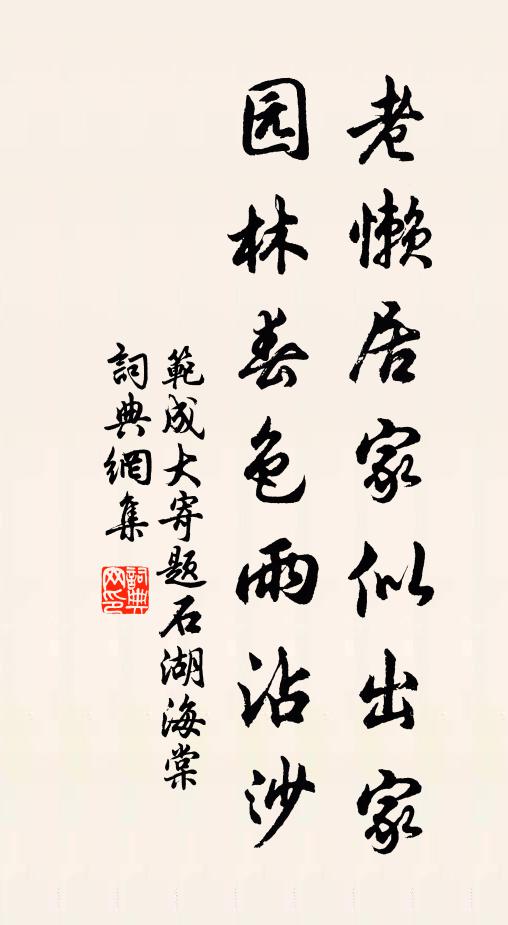 老懒居家似出家
园林春色雨沾沙
範成大寄题石湖海棠
詞典網集
詞典网印